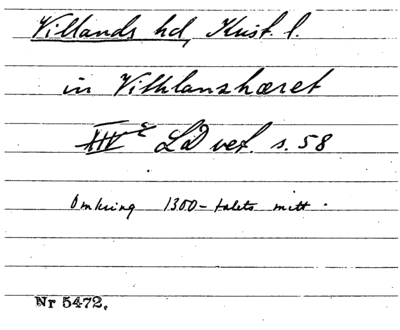 Villands hd, Krist. l.
in Vithlanzhæret
XIV e LD vet. s. 58
Omkring 1300-talets mitt.
Nr 5472.